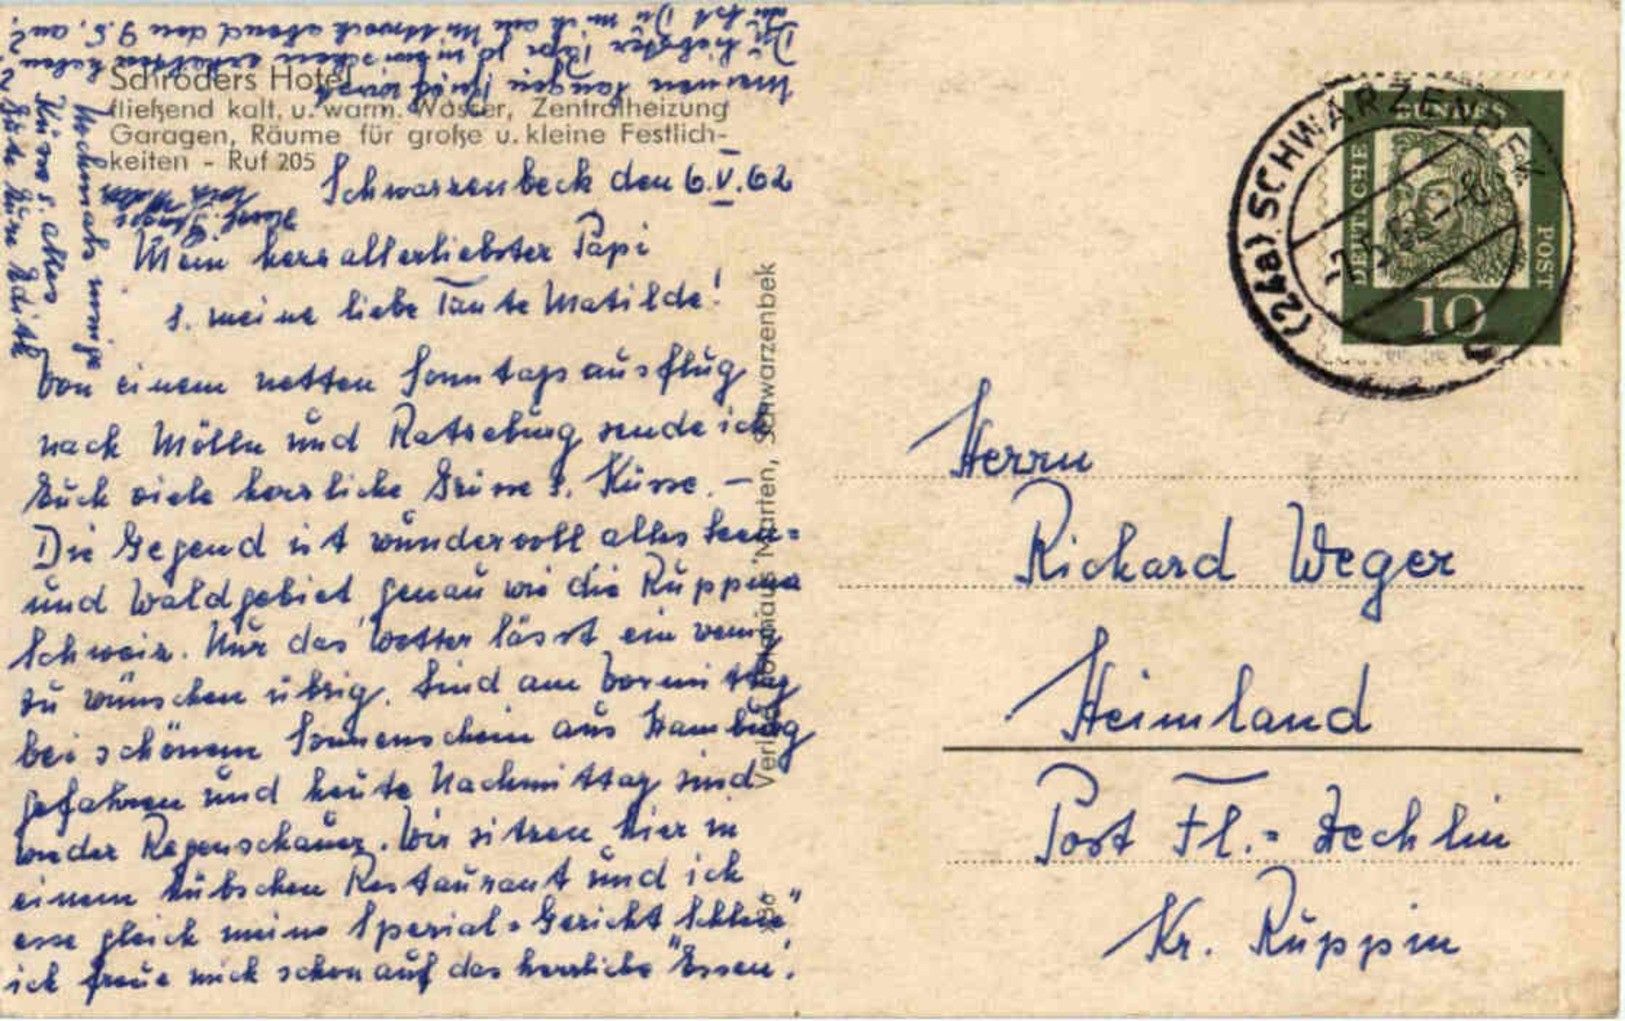 Schröders Hotel
fließend kalt. u. warm. Wasser, Zentralheizung
Garagen, Räume für große u. kleine Festlich-
keiten - Ruf 205
Schwarzenbeck den 6.V.62
Mein herzallerliebster Papi
u. meine liebe Tante Matilde!
Von einem netten Sonntagsausflug
nach Mölln und Ratzeburg sende ich
Euch viele herzliche Grüsse u. Küsse. -
Die Gegend ist wundervoll alles Seen=
und Waldgebiet genau wie die Ruppiner
Schweiz. Nur das Wetter lässt ein wenig
zu wünschen übrig. Sind am Vormittag
bei schönem Sonnenschein aus Hamburg
gefahren und heute Nachmittag sind
wieder Regenschauer. Wir sitzen hier in
einem hübschen Restaurant und ich
esse gleich meine Spezial=Gericht "Schleie"
ich freue mich schon auf das herrliche "Essen".
Meinen langen Brief wirst
Du liebster Papi ja inzwischen erhalten haben.
Du rufst mich am Mittwoch abend den 9.5. an?
Nochmals innige
Küsse u. alles
Gute Eure Edith
Verlag Marten, Schwarzenbek
(24a) SCHWARZENBEK
DEUTSCHE
POST
10
Herrn
Richard Weger
Heimland
Post Fl.=Zechlin
Kr. Ruppin